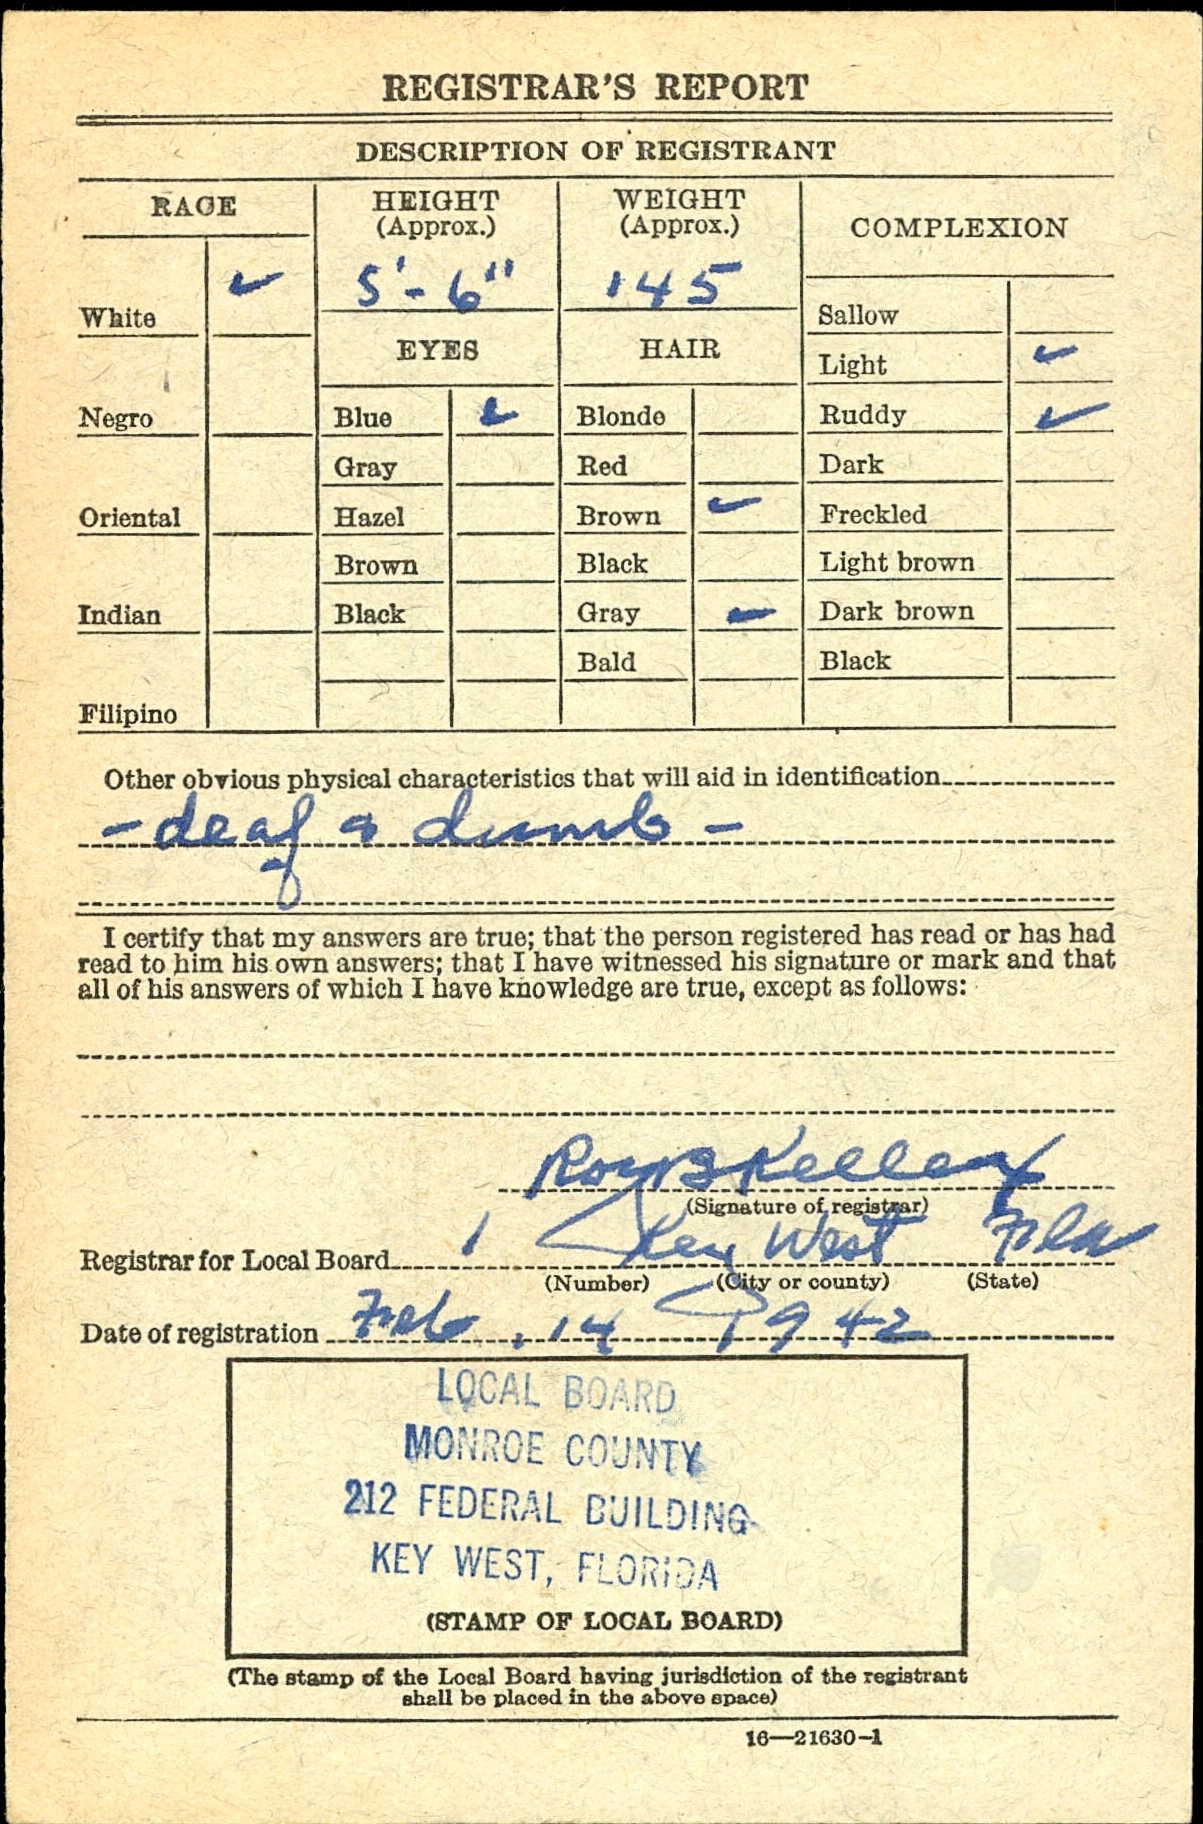 REGISTRAR'S REPORT
DESCRIPTION OF REGISTRANT
RACE
HEIGHT
(Approx.)
WEIGHT
(Approx.)
COMPLEXION
White ✓
5'-6"
145
Sallow
EYES
HAIR
Light ✓
Negro
Blue ✓
Blonde
Ruddy ✓
Gray
Red
Dark
Oriental
Hazel
Brown ✓
Freckled
Brown
Black
Light brown
Indian
Black
Gray ✓
Dark brown
Bald
Black
Filipino
Other obvious physical characteristics that will aid in identification
- deaf & dumb -
I certify that my answers are true; that the person registered has read or has had
read to him his own answers; that I have witnessed his signature or mark and that
all of his answers of which I have knowledge are true, except as follows:
Roy B Kelley
(Signature of registrar)
Registrar for Local Board 1 Key West Fla
(Number) (City or county) (State)
Date of registration Feb. 14 1942
LOCAL BOARD
MONROE COUNTY
212 FEDERAL BUILDING
KEY WEST, FLORIDA
(STAMP OF LOCAL BOARD)
(The stamp of the Local Board having jurisdiction of the registrant
shall be placed in the above space)
16—21630-1